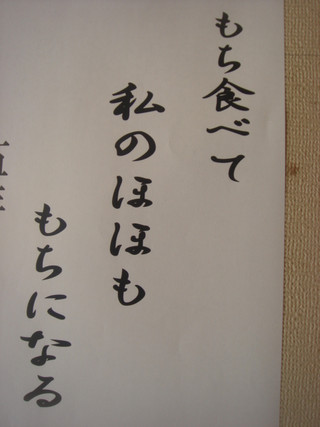 もち食べて
私のほほも
もちになる